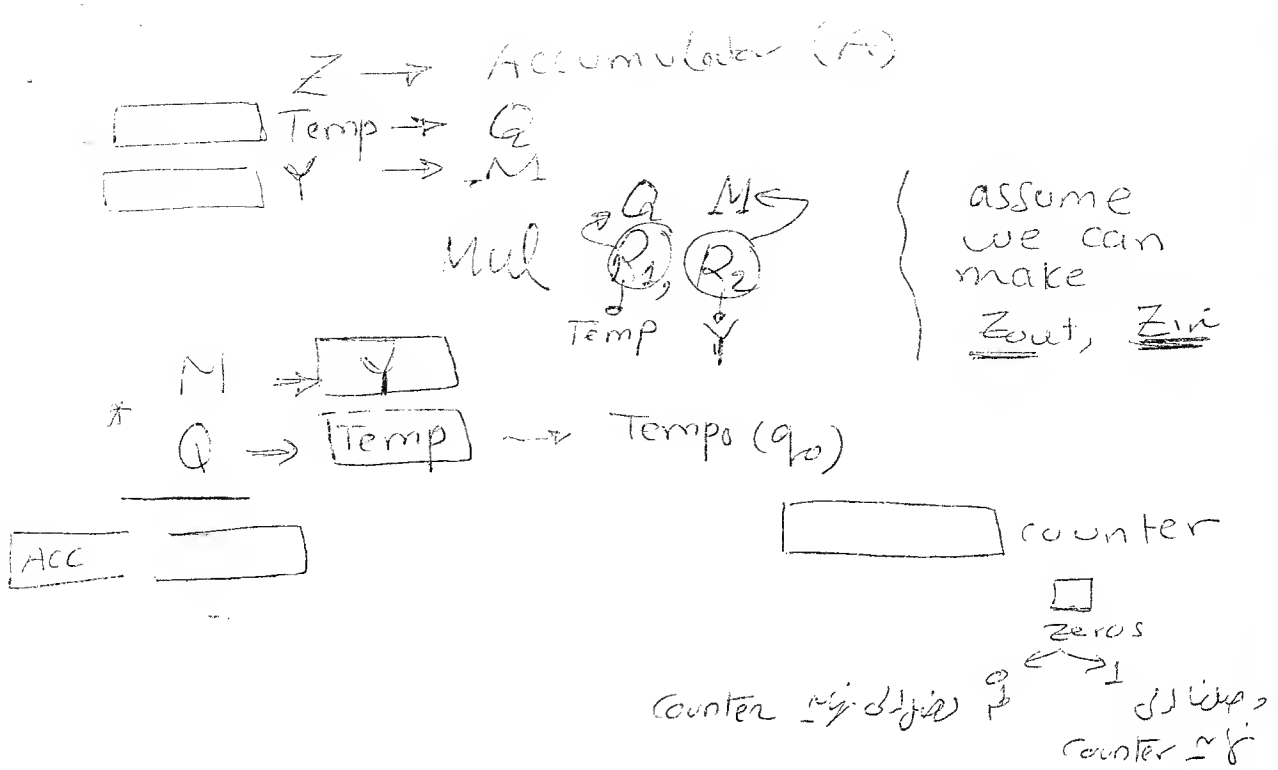 Z → Accumulator (A)
Temp → Q
Y → M
Q M
Mul R1, R2
Temp Y
assume
we can
make
Zout, Zin
M ⇒ Y
*
Q ⇒ Temp → Temp0 (q0)
ACC
counter
zeros
0 1
counter
counter